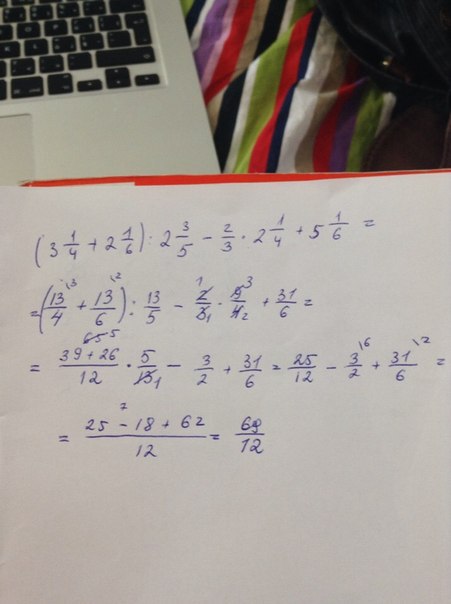 (3 1/4 + 2 1/6) : 2 3/5 - 2/3 · 2 1/4 + 5 1/6 =
= (13/4 \3 + 13/6 \2) : 13/5 - 2 1/3 1 · 9 3/4 2 + 31/6 =
65 5
= 39 + 26/12 · 5/13 1 - 3/2 + 31/6 = 25/12 - 3/2 \6 + 31/6 \2 =
7
= 25 - 18 + 62/12 = 69/12